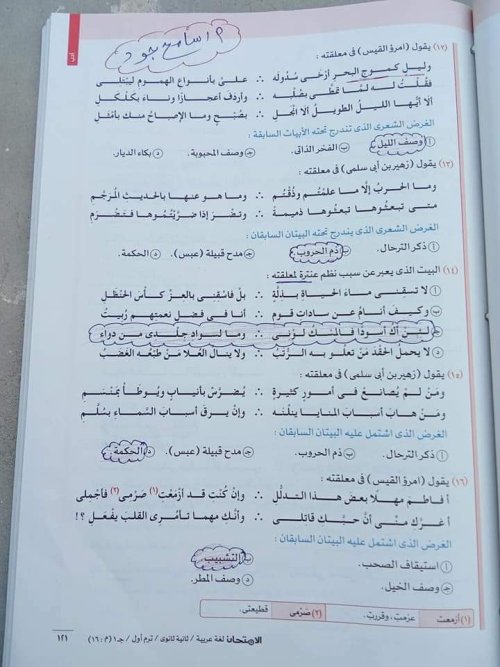 م / سامح جود
أدب
(١٢) يقول (امرؤ القيس) فى معلقته :
وليلٍ كموج البحر أرخى سُدُولَه ∴ علىَّ بأنواع الهموم ليبتلى
فقلتُ له لمَّا تمطَّى بصُلْبه ∴ وأردف أعجازًا وناءَ بكلكلِ
ألا أيُّها الليلُ الطويلُ ألا انْجَلِ ∴ بصُبْحٍ وما الإصباحُ منك بأمْثلِ
الغرض الشعرى الذى تندرج تحته الأبيات السابقة :
أ وصف الليل. ب الفخر الذاتى. ج وصف المحبوبة. د بكاء الديار.
(١٣) يقول (زهير بن أبى سلمى) فى معلقته :
وما الحربُ إلَّا ما علمتُم وذُقْتُم ∴ وما هو عنها بالحديثِ المُرَجَّمِ
متى تبعثُوها تبعثُوها ذميمةً ∴ وتضْرَ إذا ضرَّيتُموها فتضْرَمِ
الغرض الشعرى الذى يندرج تحته البيتان السابقان :
أ ذكر الترحال. ب ذم الحروب. ج مدح قبيلة (عبس). د الحكمة.
(١٤) البيت الذى يعبر عن سبب نظم عنترة لمعلقته :
أ لا تسقنى ماءَ الحياةِ بذلَّةٍ ∴ بل فاسْقنى بالعزِّ كأسَ الحَنْظلِ
ب وكيف أنامُ عن ساداتِ قومٍ ∴ أنا فى فضلِ نعمتِهم رُبيتُ
ج لئن أكُ أسودًا فالمسكُ لونى ∴ وما لسوادِ جلدى من دواءِ
د لا يحملُ الحقدَ مَنْ تعلُو به الرُّتَبُ ∴ ولا ينالُ العُلا مَنْ طبْعُه الغضبُ
(١٥) يقول (زهير بن أبى سلمى) فى معلقته :
ومَنْ لمْ يُصانعْ فى أمورٍ كثيرةٍ ∴ يُضرَّسْ بأنيابٍ ويُوطأْ بمَنْسَمِ
ومَنْ هابَ أسبابَ المنايا ينلْنَه ∴ وإنْ يرقَ أسبابَ السَّماءِ بسُلَّمِ
الغرض الذى اشتمل عليه البيتان السابقان :
أ ذكر الترحال. ب ذم الحروب. ج مدح قبيلة (عبس). د الحكمة.
(١٦) يقول (امرؤ القيس) فى معلقته :
أفاطمَ مهلًا بعضَ هذا التدلُّلِ ∴ وإنْ كُنتِ قد أزْمَعْتِ(١) صَرْمى(٢) فأجْملى
أغرَّكِ منِّى أنَّ حُبَّكِ قاتلى ∴ وأنَّكِ مهما تأمُرى القلبَ يفْعَلِ ؟!
الغرض الذى اشتمل عليه البيتان السابقان :
أ استيقاف الصحب. ب التشبيب.
ج وصف الخيل. د وصف المطر.
(١) أزمعت عزمتِ، وقررتِ. (٢) صَرْمى قطيعتى.
الامتحان لغة عربية / ثانية ثانوى / ترم أول / جـ١ (م : ١٦) ١٢١